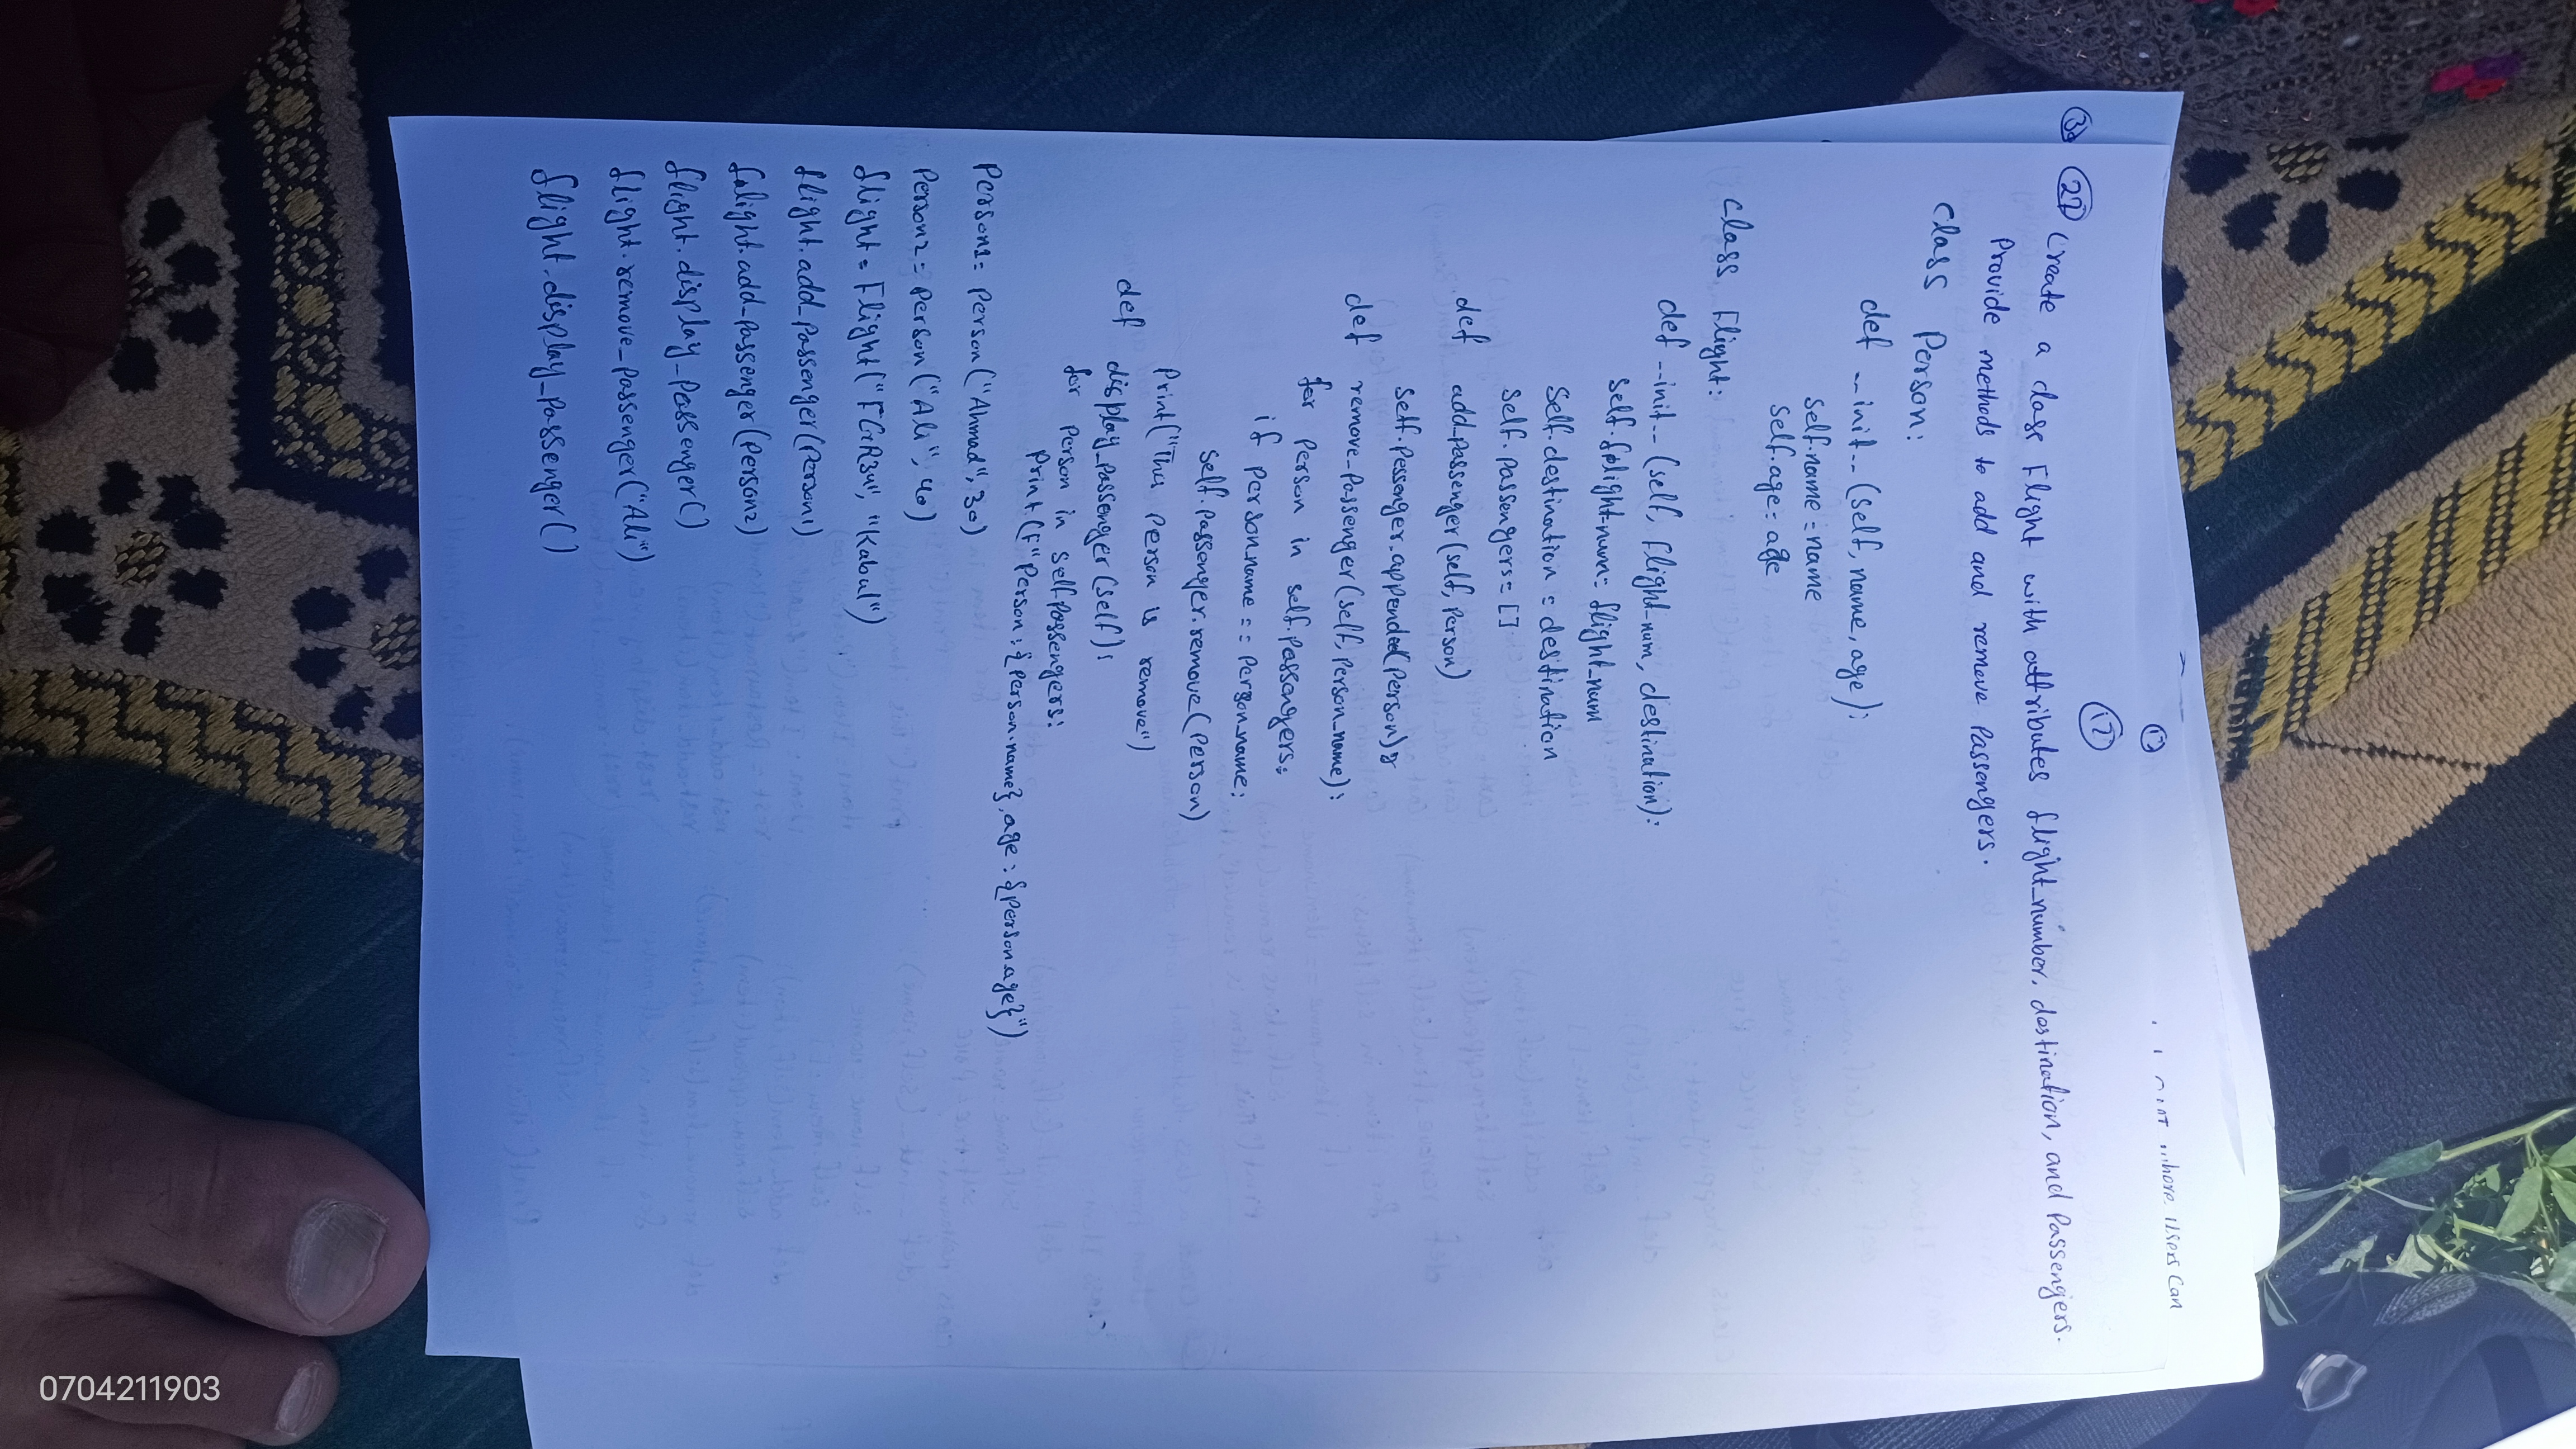 where Users Can
17
27 Create a class Flight with attributes flight_number, destination, and Passengers.
Provide methods to add and remove Passengers.
class Person:
def __init__(self, name, age):
self.name = name
self.age = age
class Flight:
def __init__(self, flight_num, destination):
self.flight_num = flight_num
self.destination = destination
self.passengers = []
def add_passenger(self, Person)
self.pessenger.append(person)
def remove_passenger(self, Person_name):
for Person in self.passengers:
if person_name == Person_name:
self.passenger.remove(Person)
Print("This Person is remove")
def display_passenger(self):
for Person in self.passengers:
Print(F"Person: {Person.name}, age: {Person.age}")
Person1 = Person("Ahmad", 30)
Person2 = Person("Ali", 40)
flight = Flight("FGR34", "Kabul")
flight.add_passenger(Person1)
flight.add_passenger(Person2)
flight.display_passenger()
flight.remove_passenger("Ali")
flight.display_passenger()
0704211903